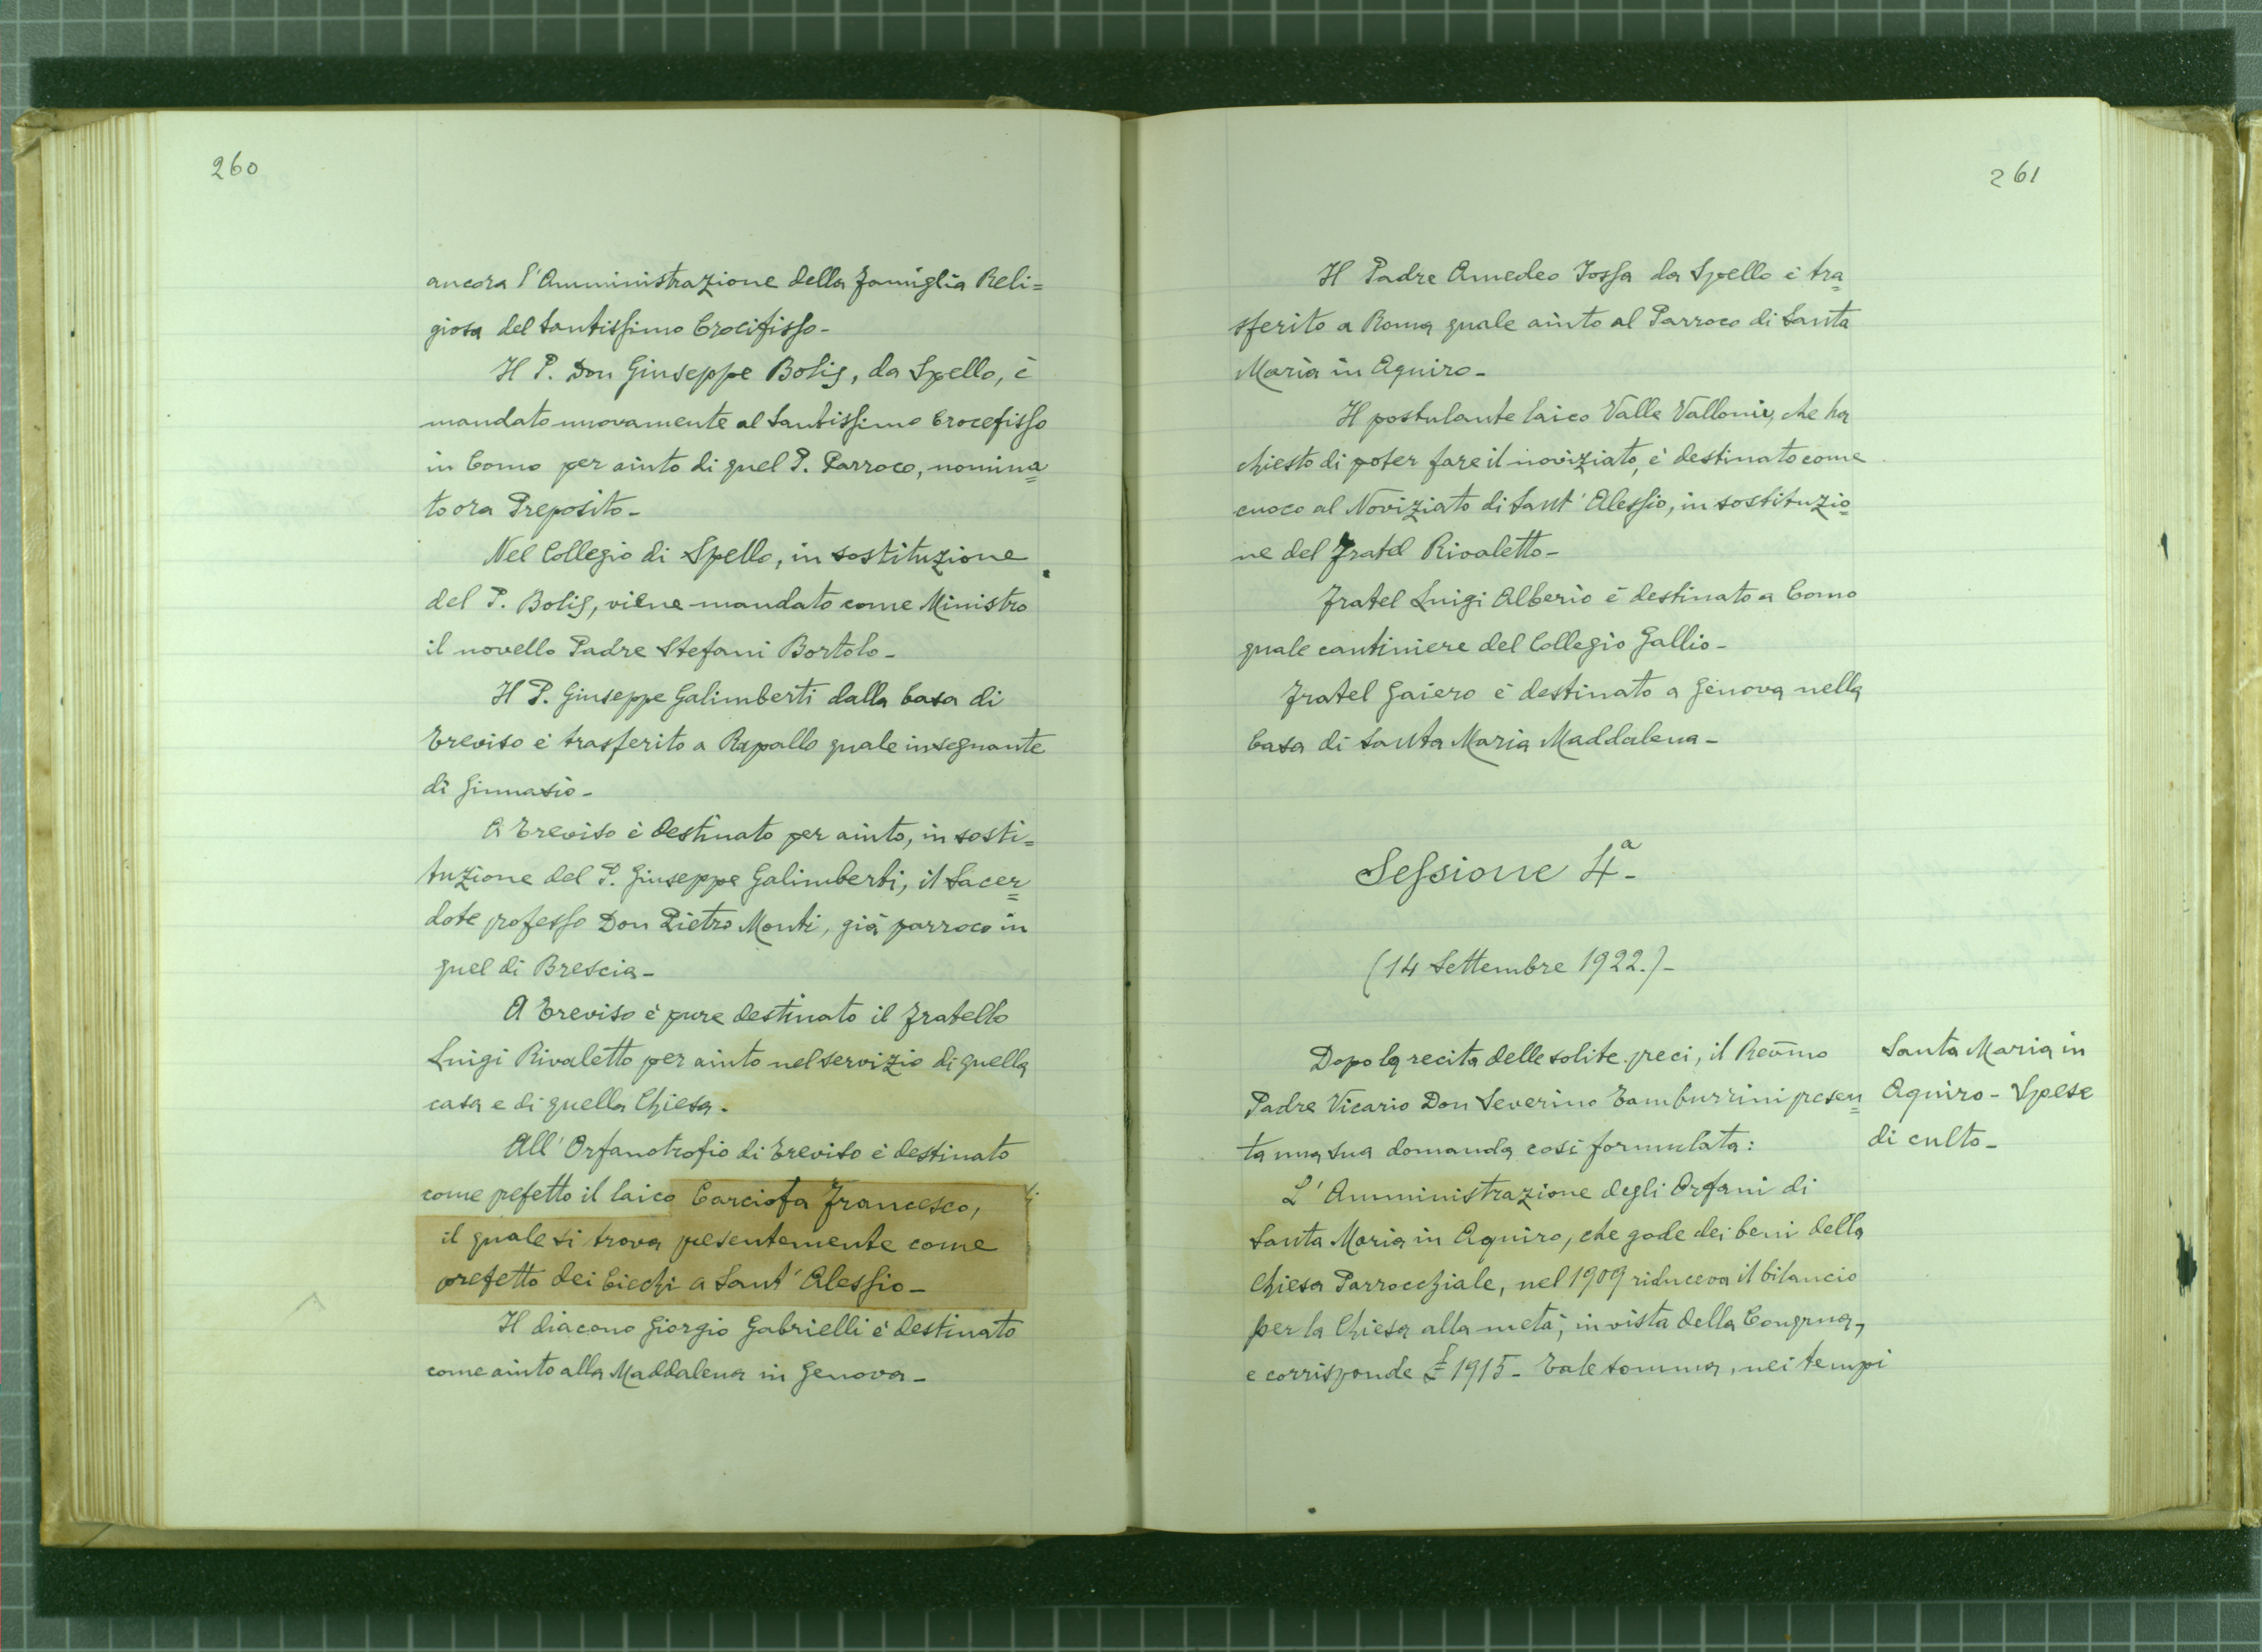 260
ancora l'Amministrazione della famiglia Reli=
giosa del Santissimo Crocifisso-
Il P. Don Giuseppe Bolis, da Spello, è
mandato nuovamente al Santissimo Crocefisso
in Como per aiuto di quel P. Parroco, nomina=
to ora Preposito-
Nel Collegio di Spello, in sostituzione
del P. Bolis, viene mandato come Ministro
il novello Padre Stefani Bortolo-
Il P. Giuseppe Galimberti dalla Casa di
Treviso è trasferito a Rapallo quale insegnante
di Ginnasio-
A Treviso è destinato per aiuto, in sosti=
tuzione del P. Giuseppe Galimberti, il Sacer=
dote professo Don Pietro Monti, già parroco in
quel di Brescia-
A Treviso è pure destinato il fratello
Luigi Rivaletto per aiuto nel servizio di quella
casa e di quella Chiesa-
All'Orfanotrofio di Treviso è destinato
come prefetto il laico Carciofa Francesco,
il quale si trova presentemente come
prefetto dei Ciechi a Sant'Alessio-
Il diacono Giorgio Gabrielli è destinato
come aiuto alla Maddalena in Genova-
261
Il Padre Amedeo Jossa da Spello è tra=
sferito a Roma quale aiuto al Parroco di Santa
Maria in Aquiro-
Il postulante laico Valle, che ha
chiesto di poter fare il noviziato, è destinato come
cuoco al Noviziato di Sant'Alessio, in sostituzio=
ne del Fratel Rivaletto-
Fratel Luigi Alberio è destinato a Como
quale cantiniere del Collegio Gallio-
Fratel Gaiero è destinato a Genova nella
Casa di Santa Maria Maddalena-
Sessione 4.a-
(14 Settembre 1922.)-
Dopo la recita delle solite preci, il Revmo
Padre Vicario Don Severino Tamburrini presen=
ta una sua domanda così formulata:
L'Amministrazione degli Orfani di
Santa Maria in Aquiro, che gode dei beni della
Chiesa Parrocchiale, nel 1909 riduceva il bilancio
per la Chiesa alla metà, in vista della Congrua,
e corrisponde £ 1915- Tale somma, nei tempi
Santa Maria in
Aquiro - Spese
di culto-